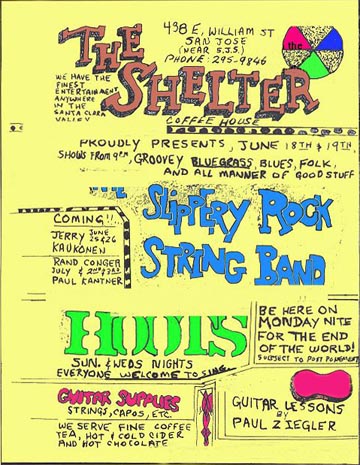 THE
SHELTER
438 E. WILLIAM ST
SAN JOSE
(NEAR S.J.S.)
PHONE: 295-9846
the
WE HAVE THE
FINEST
ENTERTAINMENT
ANYWHERE
IN THE
SANTA CLARA
VALLEY
COFFEE HOUSE
PROUDLY PRESENTS, JUNE 18TH & 19TH,
SHOWS FROM 9PM, GROOVEY BLUEGRASS, BLUES, FOLK,
AND ALL MANNER OF GOOD STUFF
SLIPPERY ROCK
STRING BAND
COMING!!
JERRY JUNE
25&26
KAUKONEN
RAND CONGER
JULY & 2ND & 3RD
PAUL KANTNER
HOOTS
SUN. & WEDS NIGHTS
EVERYONE WELCOME TO SING
BE HERE ON
MONDAY NITE
FOR THE END
OF THE WORLD!
SUBJECT TO POSTPONEMENT
GUITAR SUPPLIES
STRINGS, CAPOS, ETC.
WE SERVE FINE COFFEE
TEA, HOT & COLD CIDER
AND HOT CHOCOLATE
GUITAR LESSONS
BY
PAUL ZIEGLER